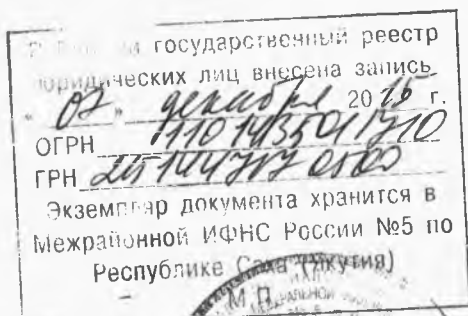 государственный реестр
юридических лиц внесена запись
" 07 " декабря 2015 г.
ОГРН 1101435011710
ГРН
Экземпляр документа хранится в
Межрайонной ИФНС России №5 по
Республике Саха (Якутия)
М.П.